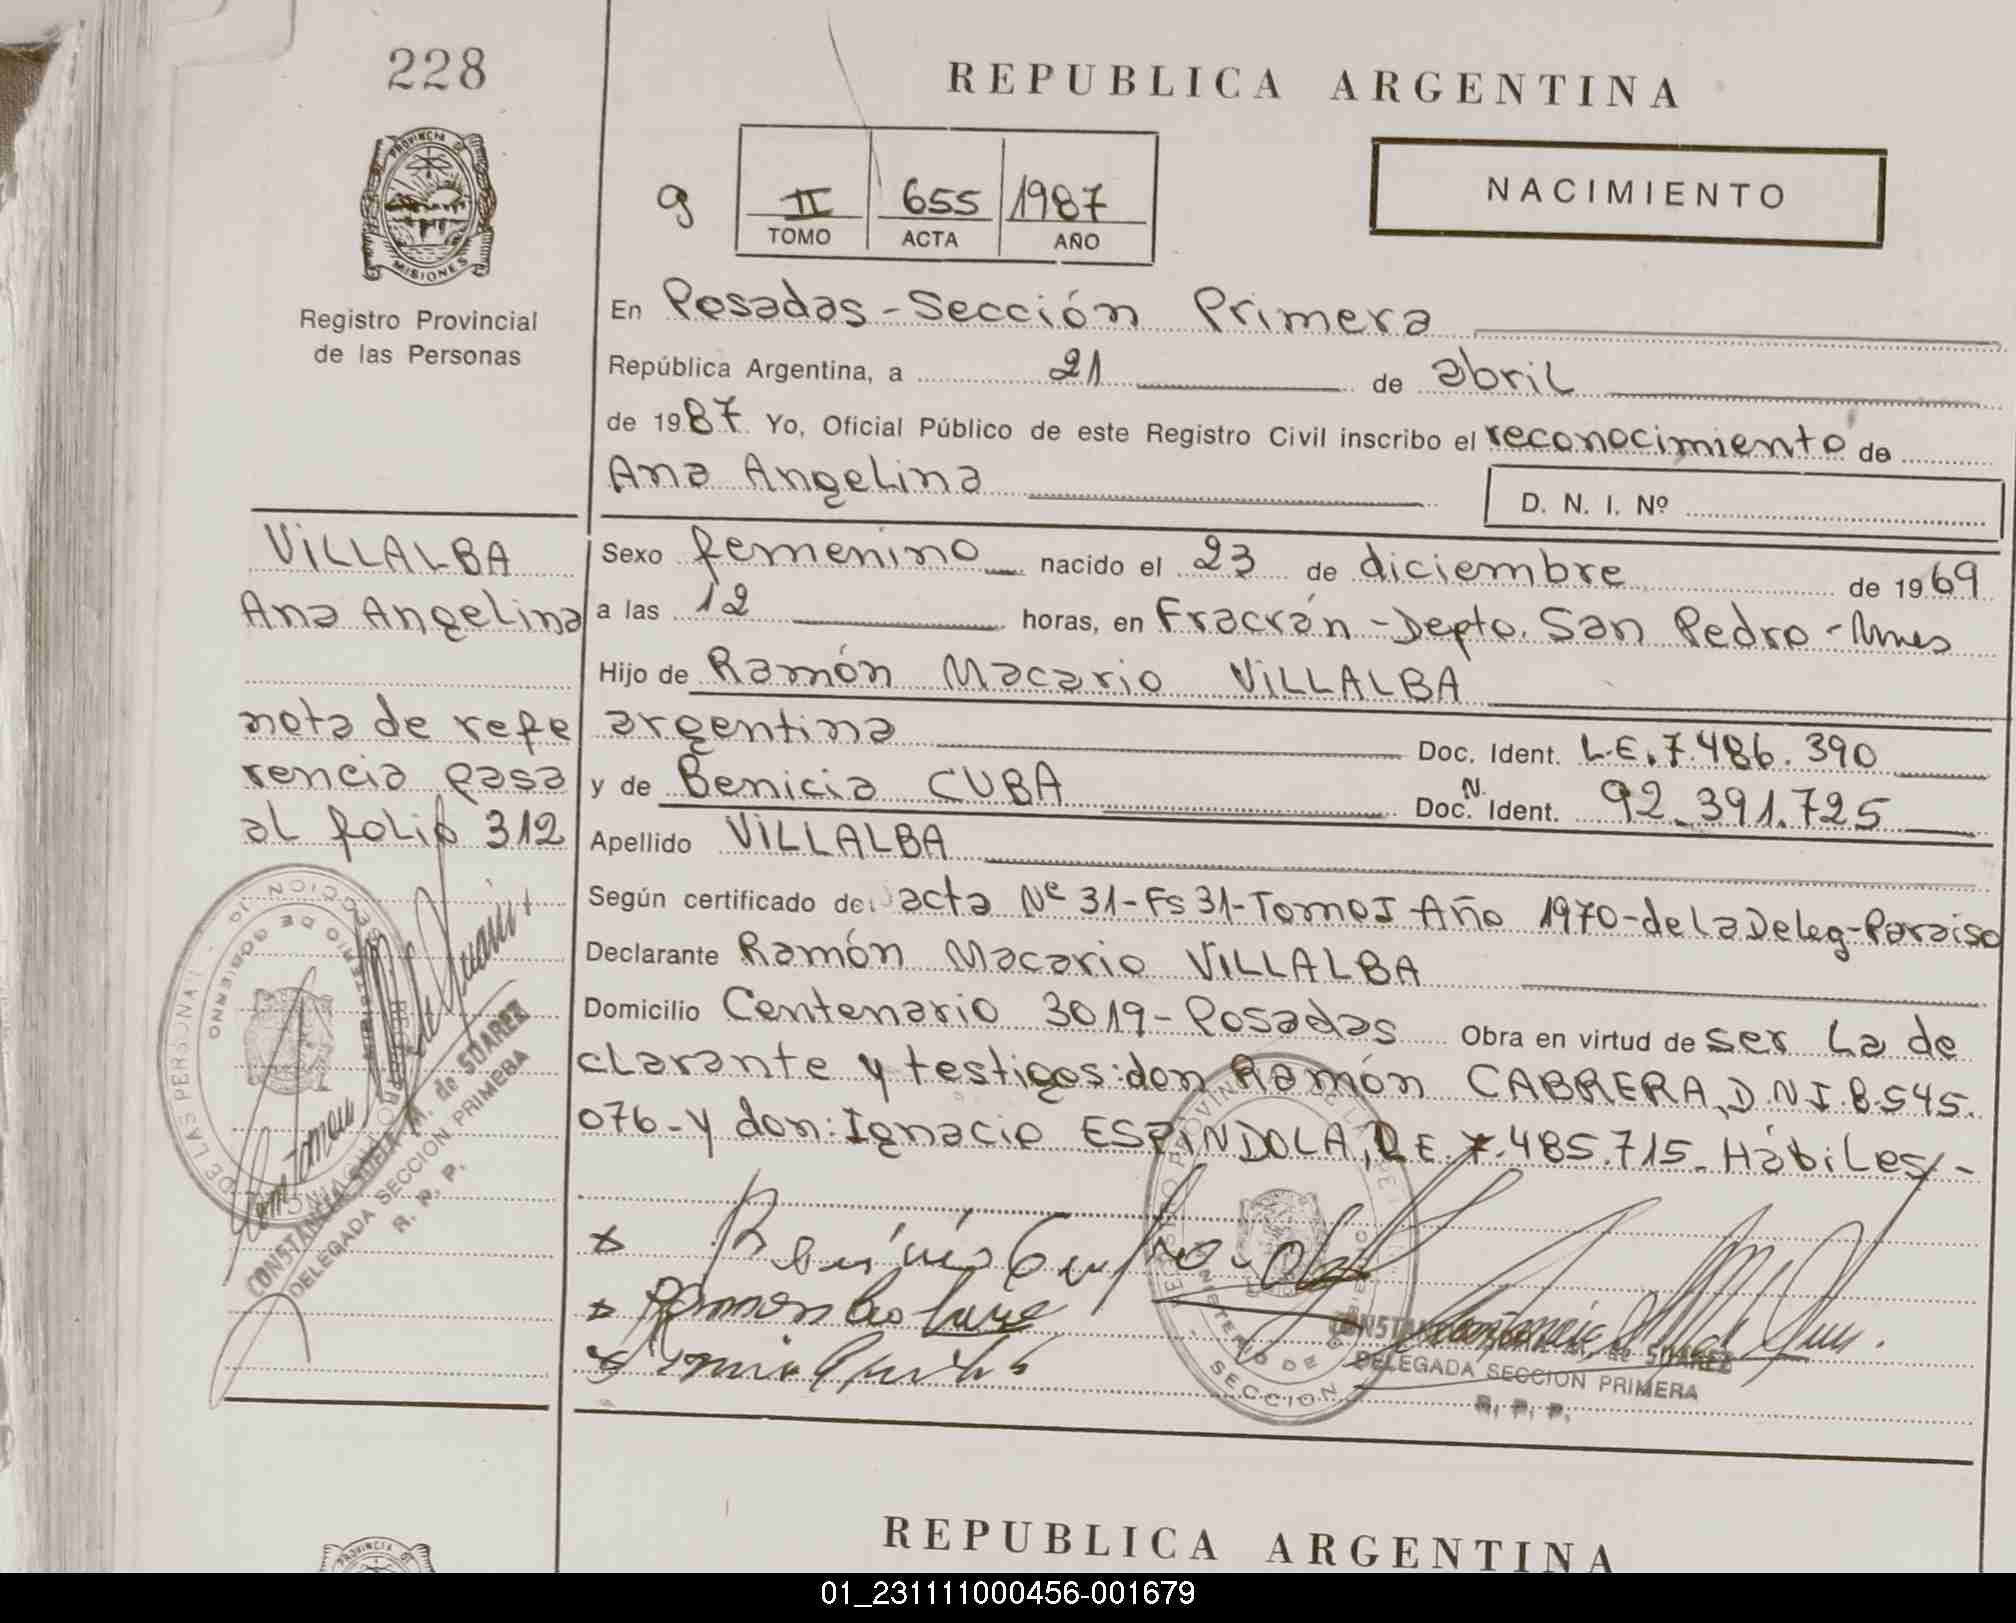 228
REPUBLICA ARGENTINA
PROVINCIA DE
MISIONES
Registro Provincial
de las Personas
g
II 655 1987
TOMO ACTA AÑO
NACIMIENTO
En Posadas-Sección Primera
República Argentina, a 21 de abril
de 1987. Yo, Oficial Público de este Registro Civil inscribo el reconocimiento de
Ana Angelina
D. N. I. Nº
VILLALBA
Ana Angelina
nota de refe
rencia pasa
al folio 312
Sexo femenino nacido el 23 de diciembre de 1969
a las 12 horas, en Fracrán-Depto. San Pedro-Mnes
Hijo de Ramón Macario VILLALBA
argentina Doc. Ident. L.E.7.486.390
y de Benicia CUBA Doc. N. Ident. 92.391.725
Apellido VILLALBA
Según certificado de: acta Nº 31-Fs 31-Tomo I Año 1970-de la Deleg-Paraiso
Declarante Ramón Macario VILLALBA
Domicilio Centenario 3019-Posadas Obra en virtud de ser la de
clarante y testigos: don Ramón CABRERA, D.N.I. 8.545.
076-y don: Ignacio ESPINDOLA, L.E. 7.485.715. Hábiles.-
CONSTANCIA ADELA M. de SUAREZ
DELEGADA SECCION PRIMERA
R. P. P.
SECCION
M. de SUAREZ
DELEGADA SECCION PRIMERA
R. P. P.
REPUBLICA ARGENTINA
PROVINCIA
01_231111000456-001679